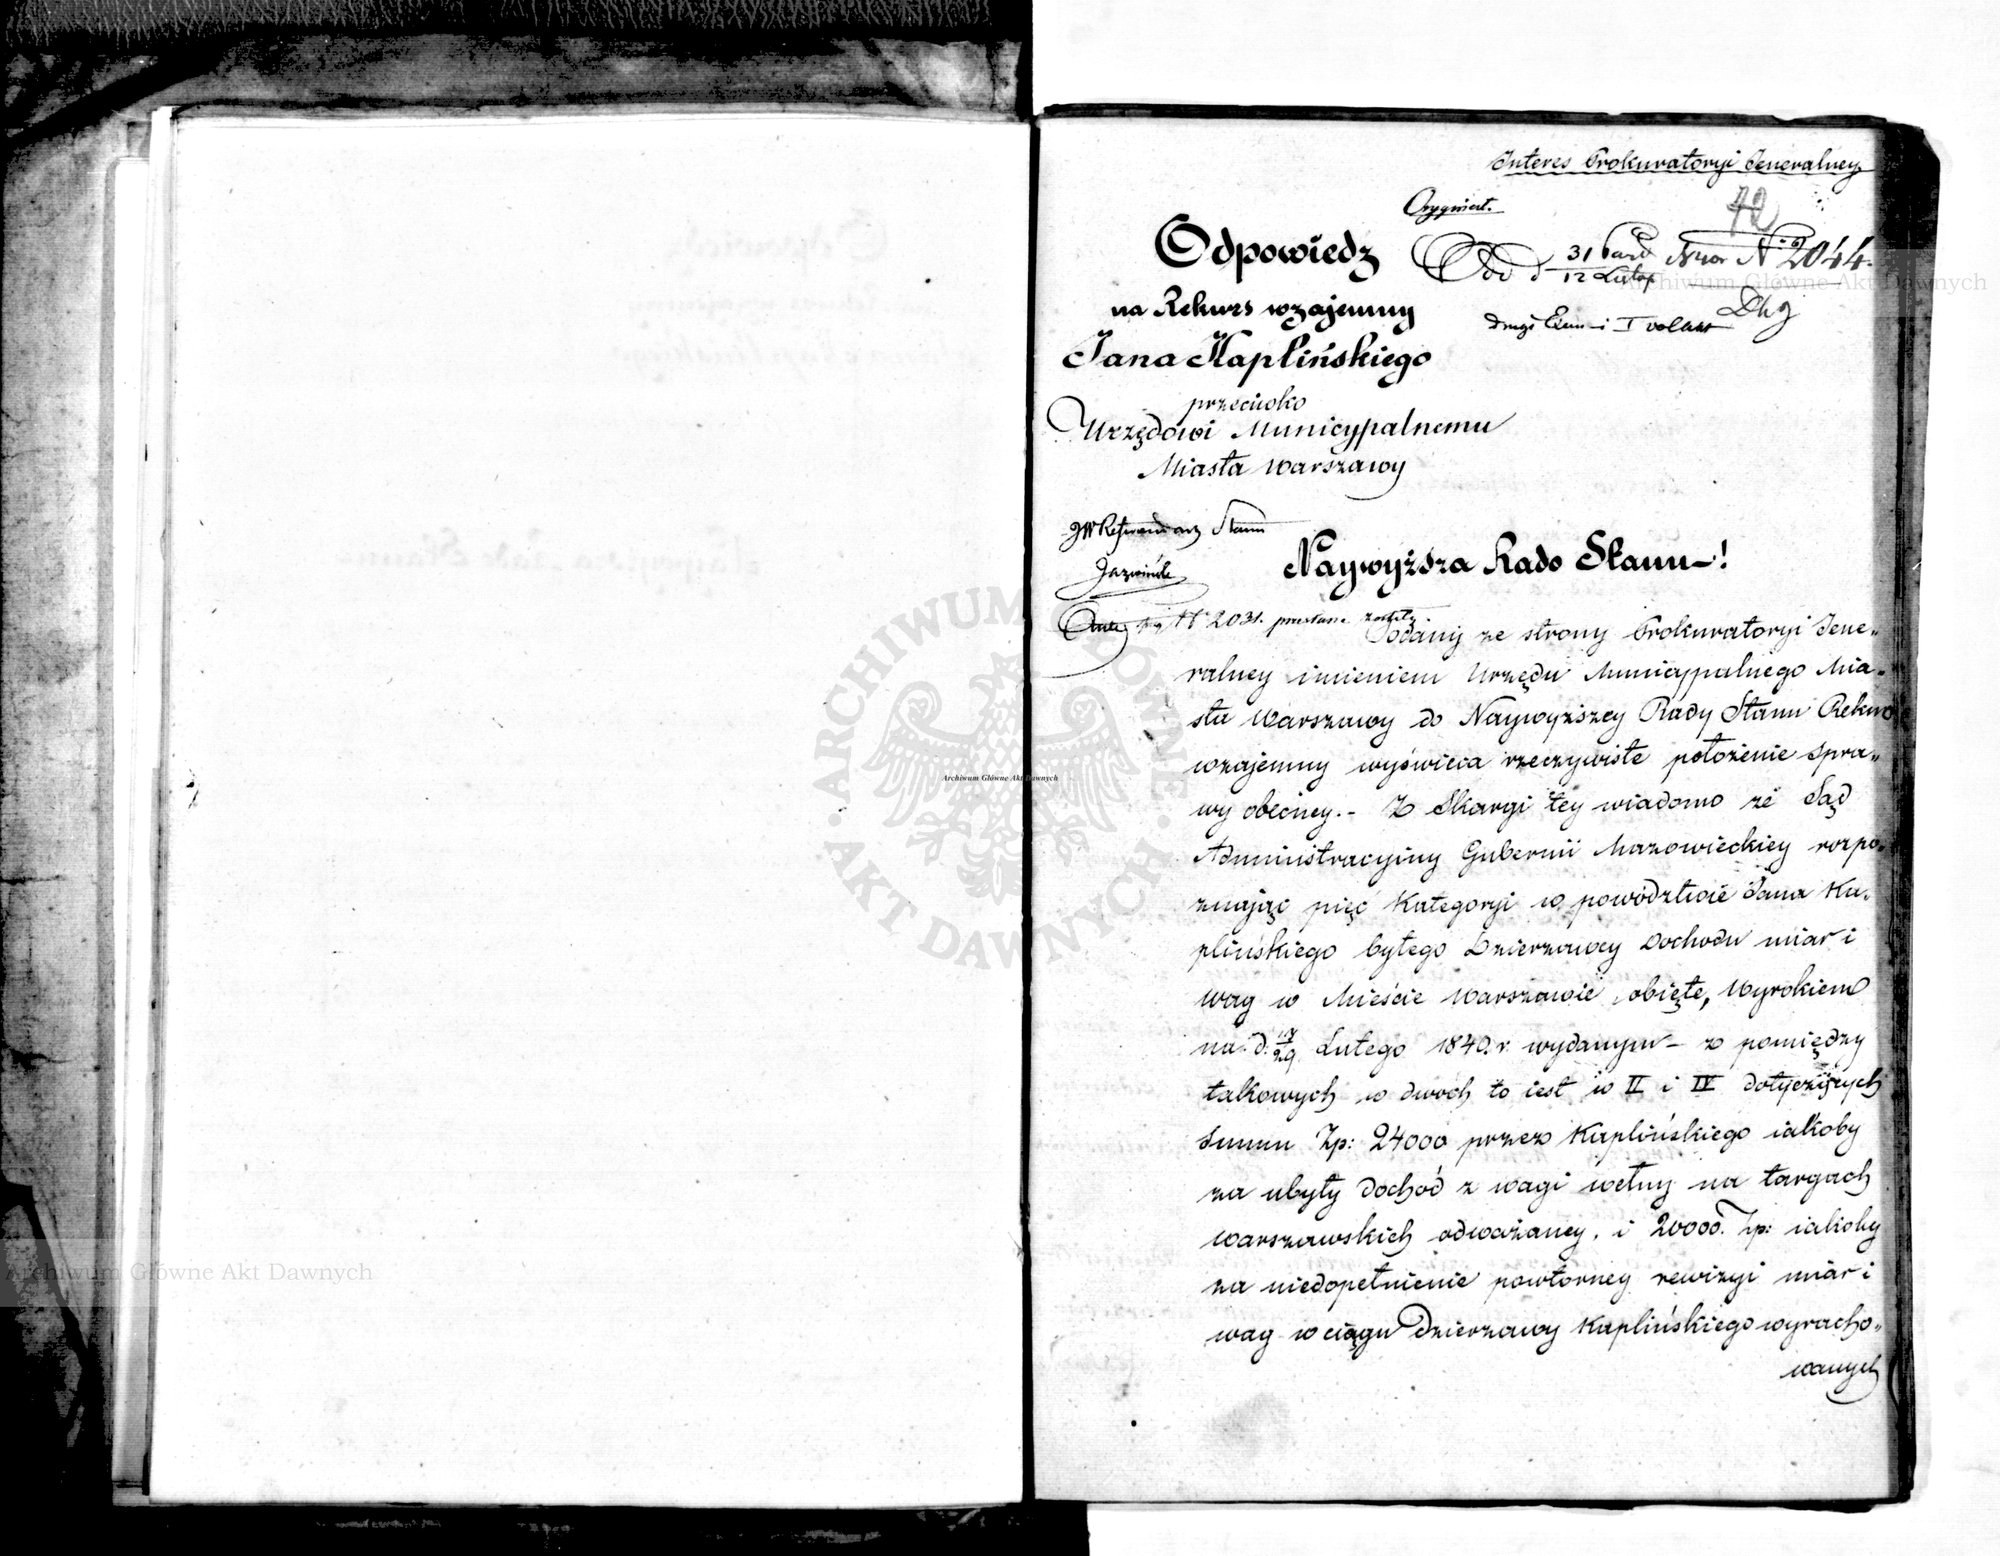 Interes Prokuratoryi Jeneralney
72
Oryginał.
Odpowiedz
na Rekurs wzajemny
Jana Kaplińskiego
przeciwko
Urzędowi Municypalnemu
Miasta Warszawy
31
12 Lutego
N° 2044.
JW Referendarz Stanu
Naywyższa Rado Stanu!
N° 2031. przesłane zostały
Podany ze strony Prokuratoryi Jene„
ralney imieniem Urzędu Municypalnego Mia„
sta Warszawy do Naywyższey Rady Stanu Rekurs
wzajemny wyświeca rzeczywiste położenie spra„
wy obecney.- Z Skargi tey wiadomo że Sąd
Administracyiny Gubernii Mazowieckiey rozpo„
znając pięc Kategoryi w powództwie Jana Ka„
plińskiego byłego Dzierzawcy Dochodu miar i
wag w Mieście Warszawie obięte, Wyrokiem
na d. 17/29 Lutego 1840. r. wydanym - z pomiędzy
takowych w dwoch to iest w II i IV dotyczących
Summ Zp: 24000 przez Kaplińskiego iakoby
za ubyły dochod z wagi wełny na targach
warszawskich odważaney, i 20000. Zp: iakoby
za niedopełnienie powtorney rewizyi miar i
wag w ciągu Dzierzawy Kaplińskiego wyracho„
wanych
Archiwum Główne Akt Dawnych
ARCHIWUM GŁÓWNE · AKT DAWNYCH ·
Archiwum Główne Akt Dawnych
Archiwum Główne Akt Dawnych